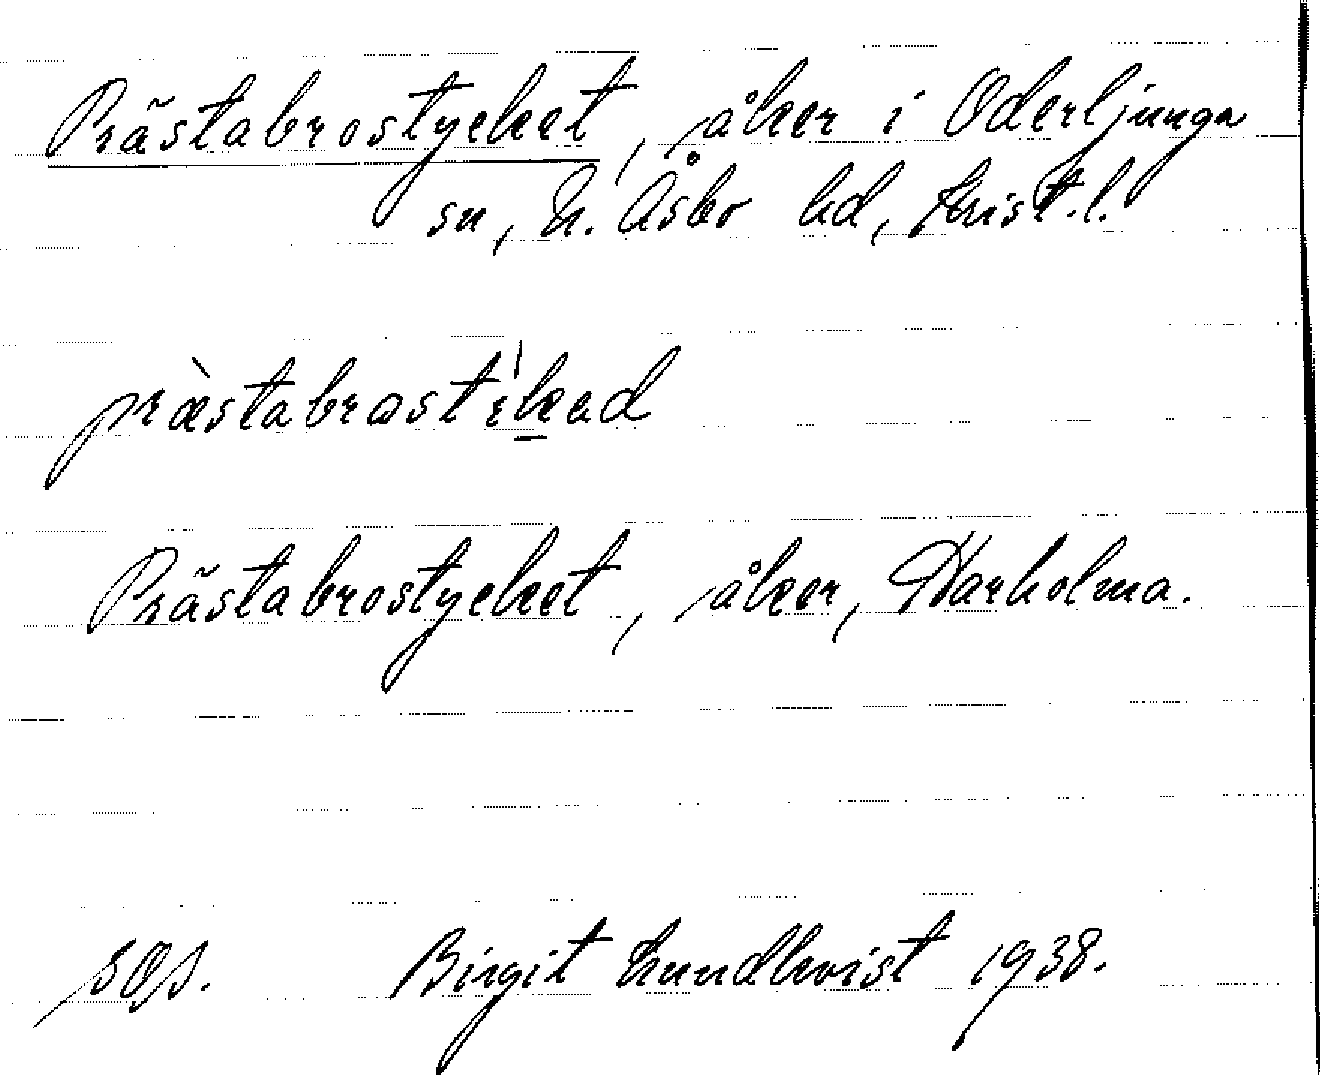 Prästabrostycket, åker i Oderljunga
sn, N. Åsbo hd, Krist. l.
præ̀stabrɑstìkəd
Prästabrostycket, åker, Harholma.
Birgit Lundkvist 1938.